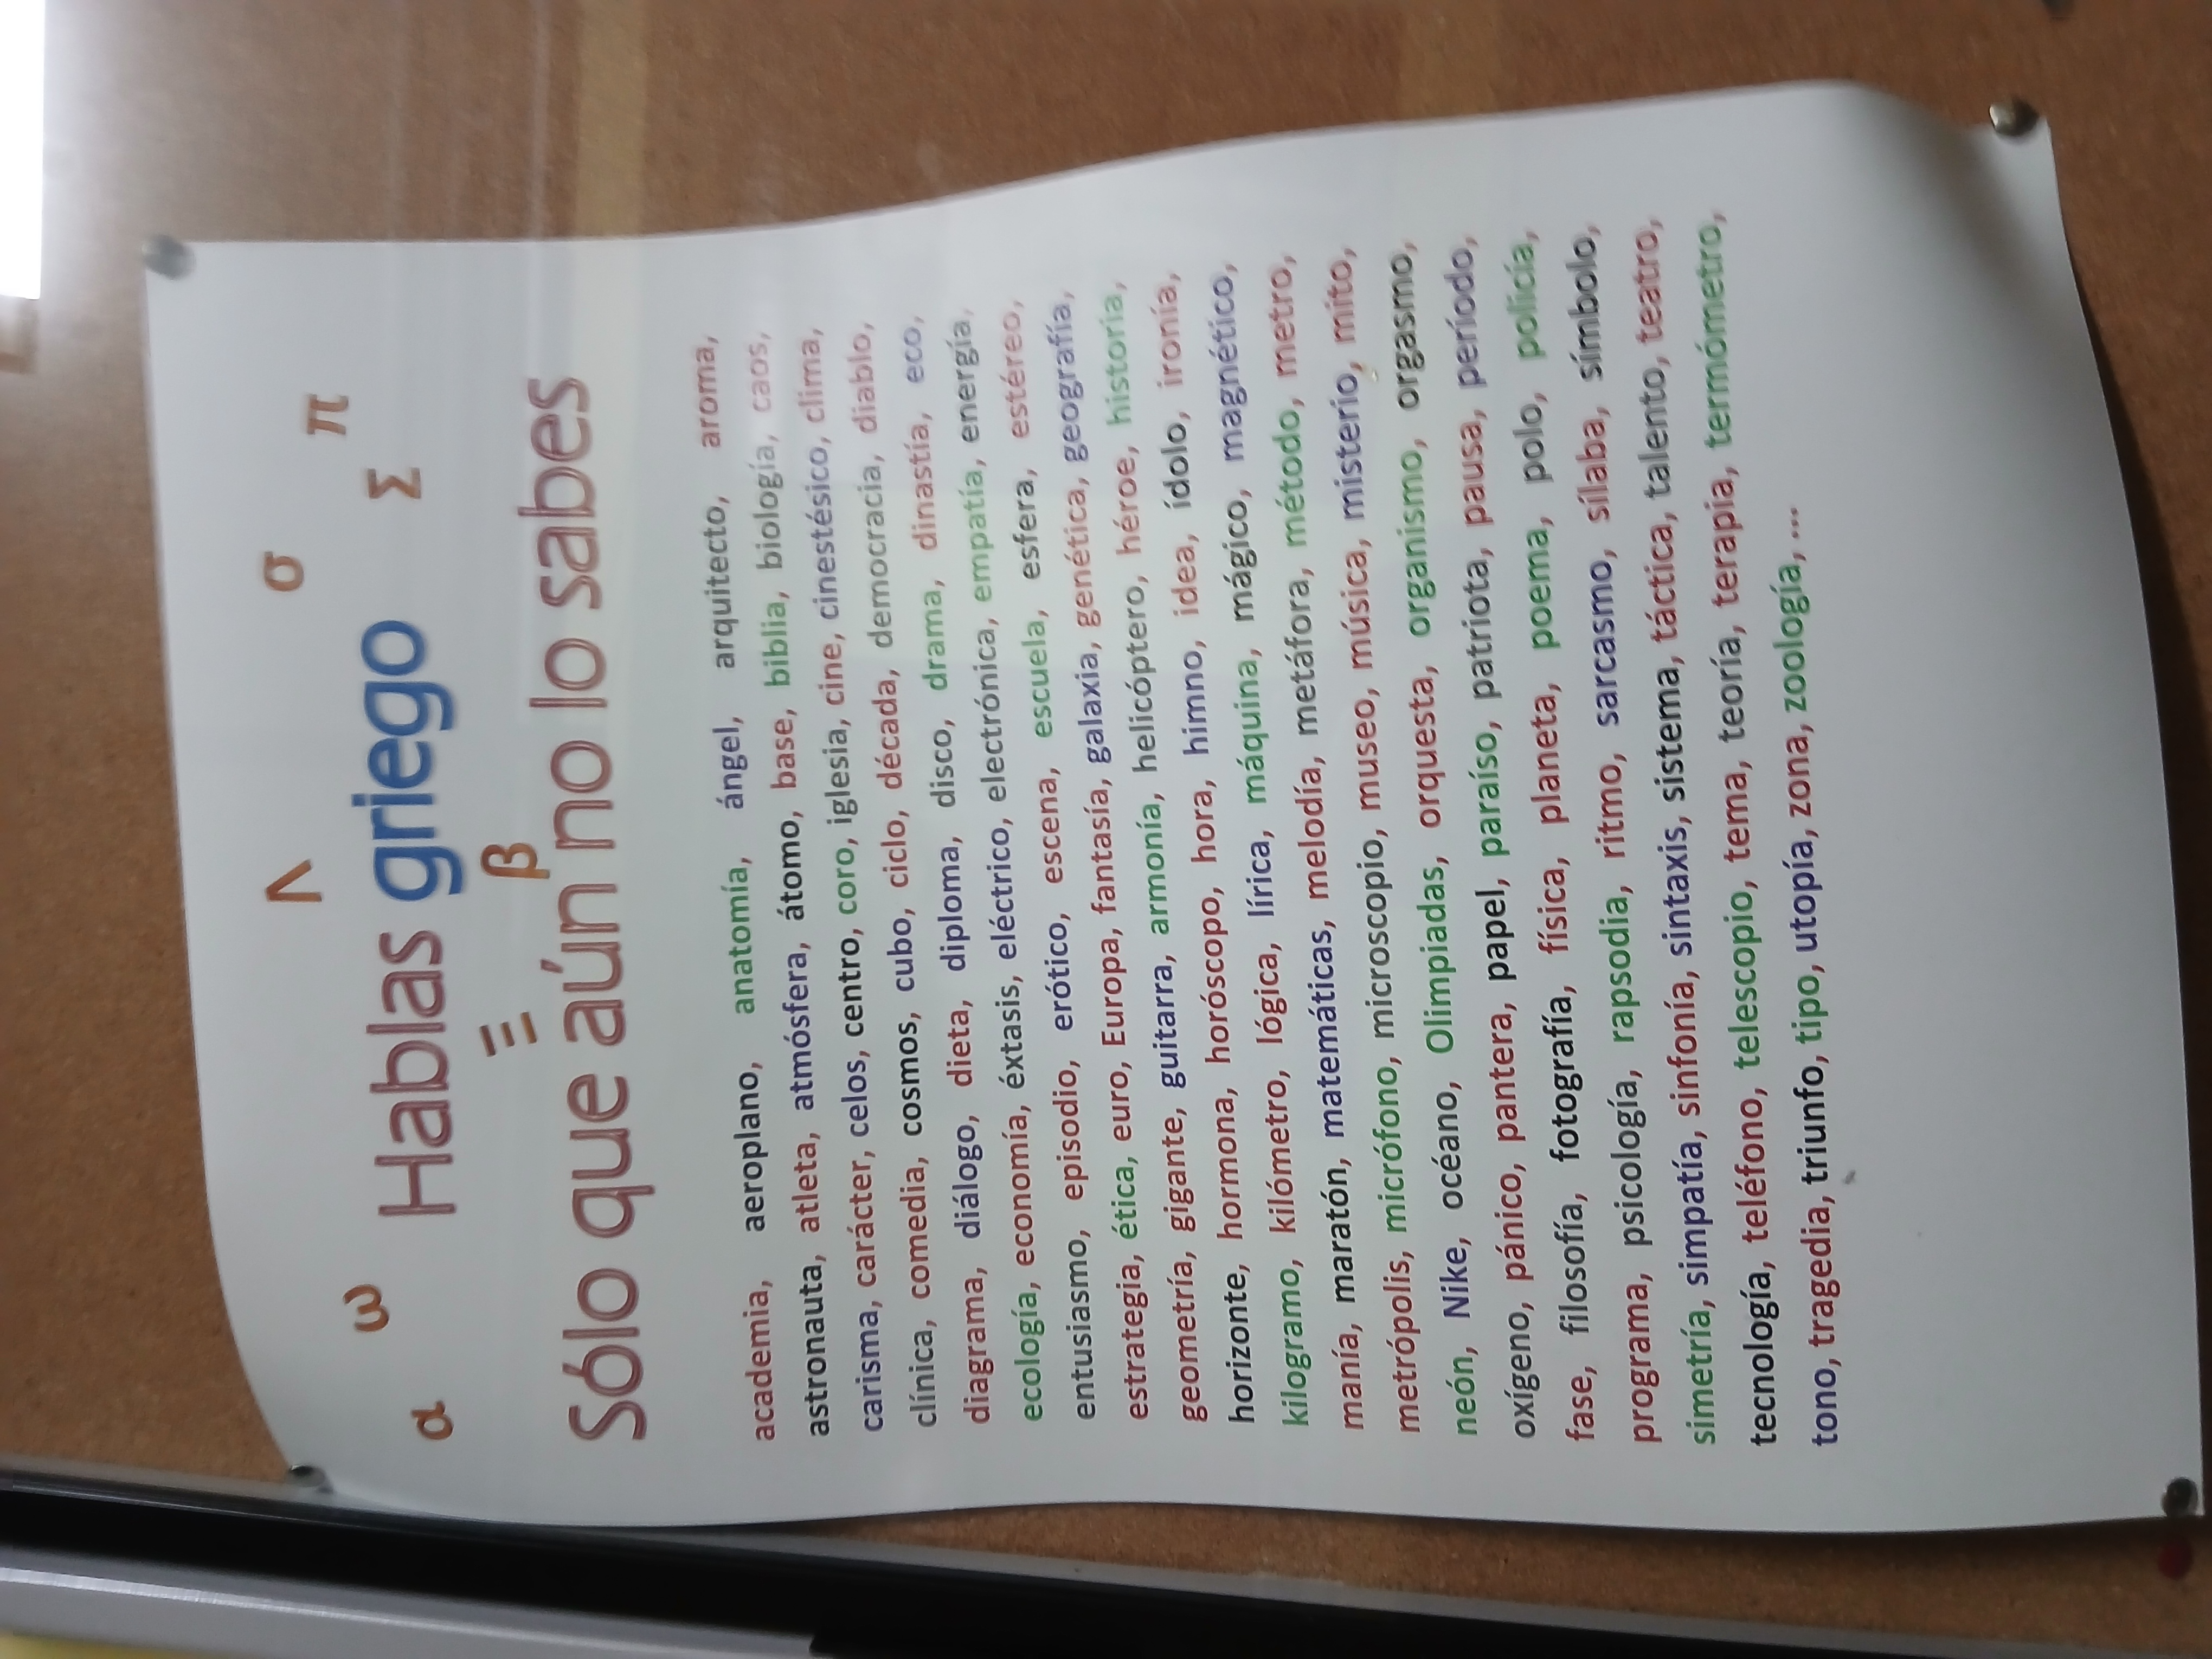 α ω Λ σ π
Hablas griego Σ
Ξ β
Sólo que aún no lo sabes
academia, aeroplano, anatomía, ángel, arquitecto, aroma,
astronauta, atleta, atmósfera, átomo, base, biblia, biología, caos,
carisma, carácter, celos, centro, coro, iglesia, cine, cinestésico, clima,
clínica, comedia, cosmos, cubo, ciclo, década, democracia, diablo,
diagrama, diálogo, dieta, diploma, disco, drama, dinastía, eco,
ecología, economía, éxtasis, eléctrico, electrónica, empatía, energía,
entusiasmo, episodio, erótico, escena, escuela, esfera, estéreo,
estrategia, ética, euro, Europa, fantasía, galaxia, genética, geografía,
geometría, gigante, guitarra, armonía, helicóptero, héroe, historia,
horizonte, hormona, horóscopo, hora, himno, idea, ídolo, ironía,
kilogramo, kilómetro, lógica, lírica, máquina, mágico, magnético,
manía, maratón, matemáticas, melodía, metáfora, método, metro,
metrópolis, micrófono, microscopio, museo, música, misterio, mito,
neón, Nike, océano, Olimpiadas, orquesta, organismo, orgasmo,
oxígeno, pánico, pantera, papel, paraíso, patriota, pausa, período,
fase, filosofía, fotografía, física, planeta, poema, polo, policía,
programa, psicología, rapsodia, ritmo, sarcasmo, sílaba, símbolo,
simetría, simpatía, sinfonía, sintaxis, sistema, táctica, talento, teatro,
tecnología, teléfono, telescopio, tema, teoría, terapia, termómetro,
tono, tragedia, triunfo, tipo, utopía, zona, zoología,...